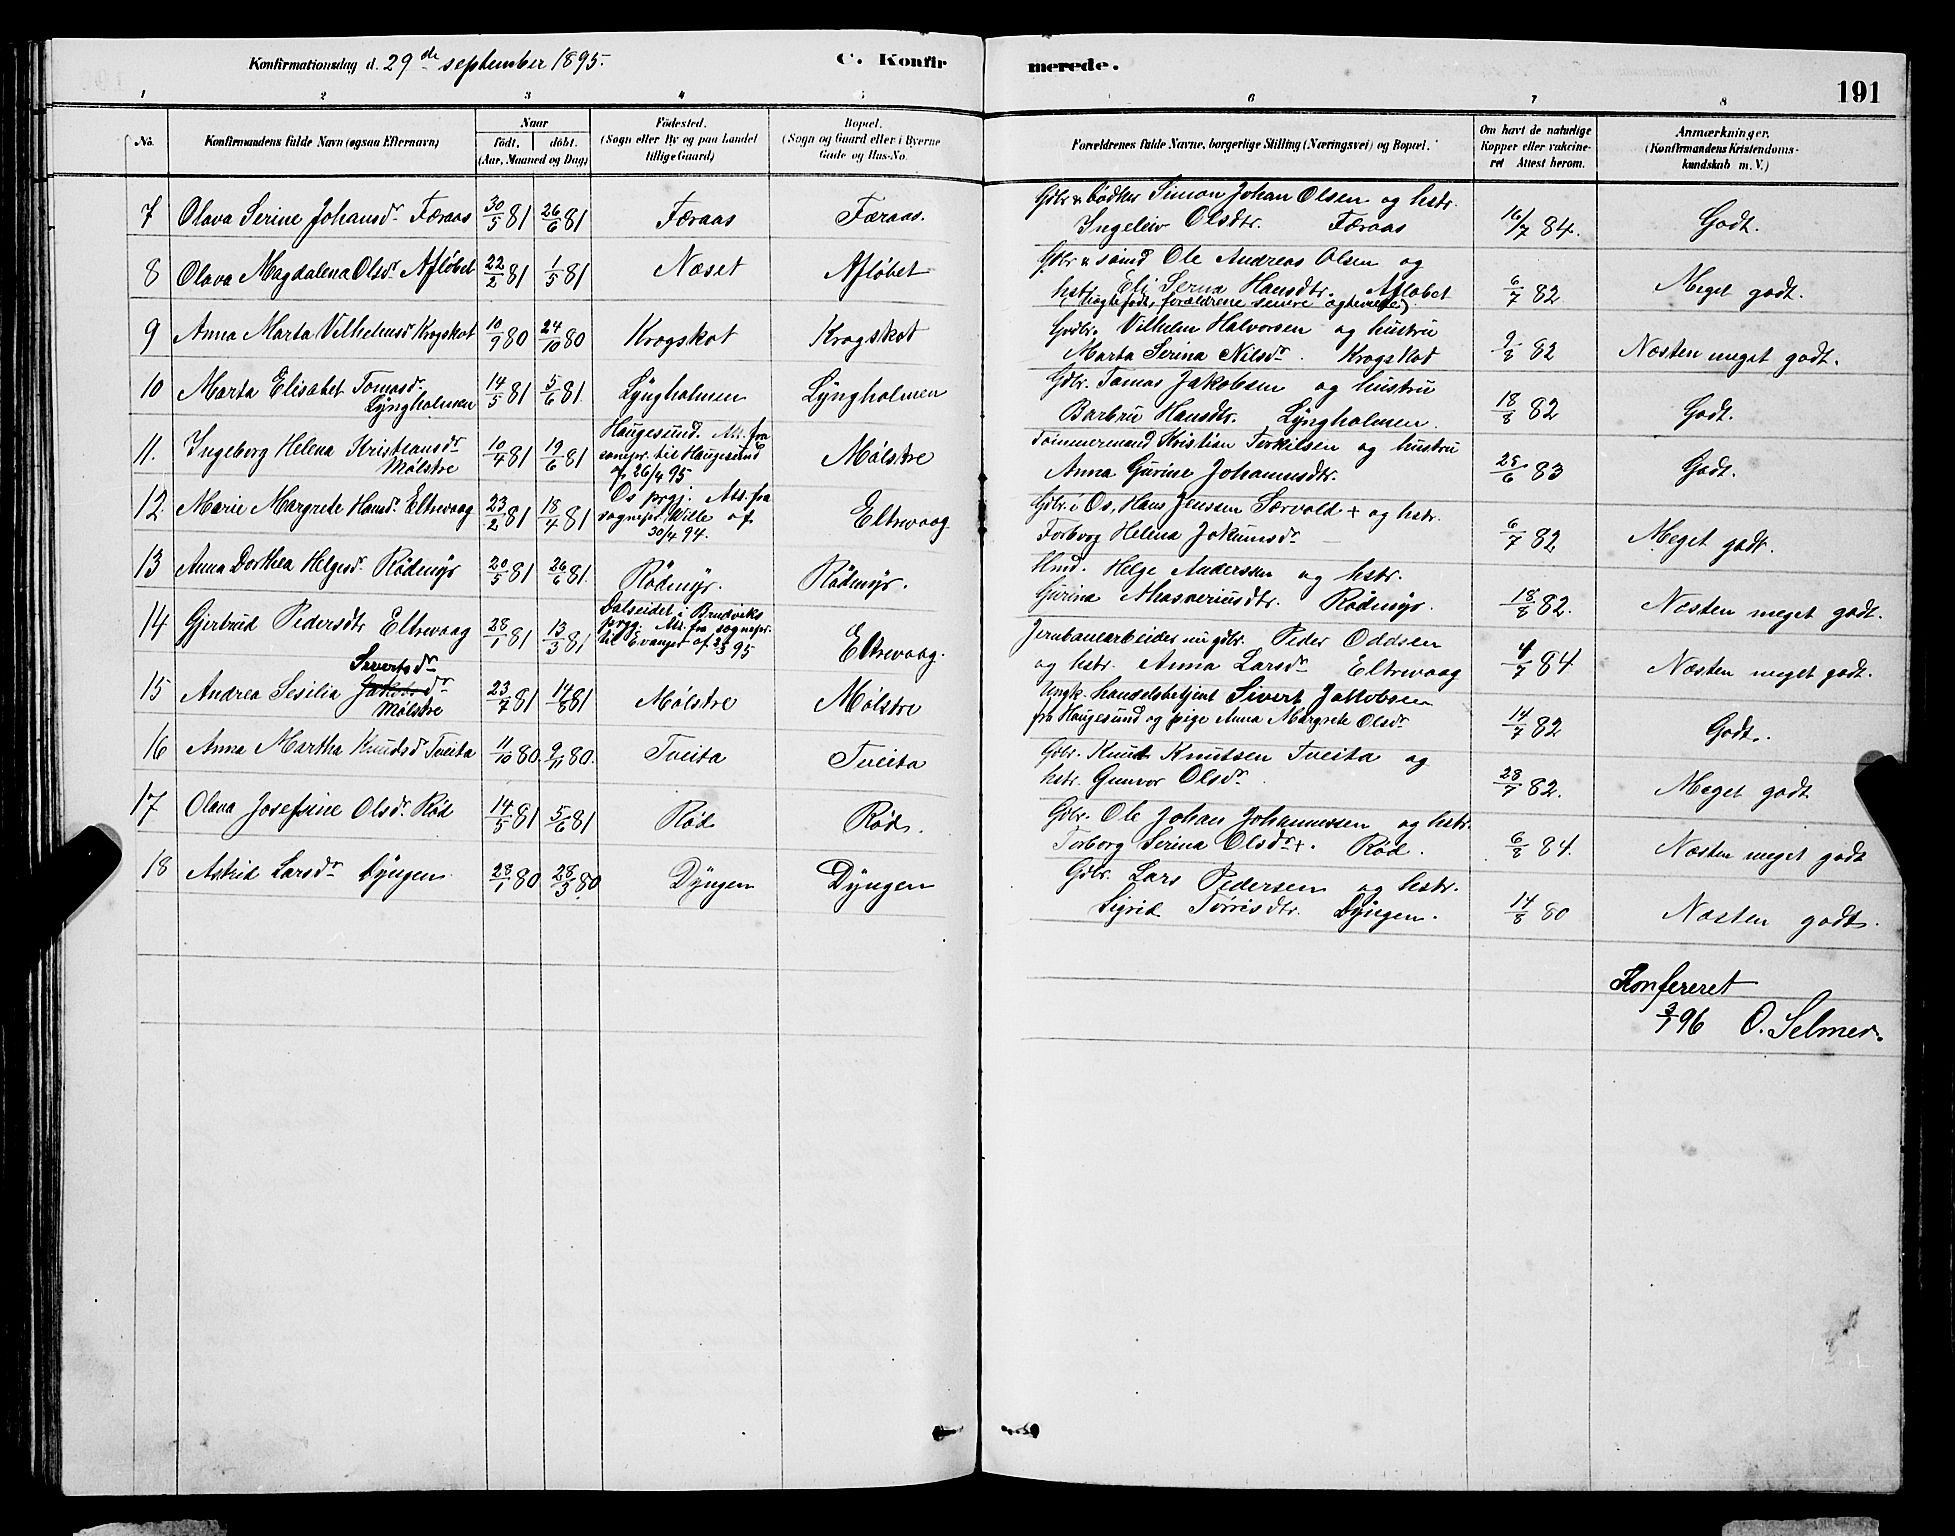 Konfirmationsdag d. 29de september 1895. C. Konfirmerede.
191
1 2 3 4 5 6 7 8
No. Konfirmandens fulde Navn (ogsaa Efternavn) Naar födt, döbt. (Aar, Maaned og Dag) Födested. (Sogn eller By og paa Landet tillige Gaard) Bopæl. (Sogn og Gaard eller i Byerne Gade og Hus-No. Forældrenes fulde Navne, borgerlige Stilling (Næringsvei) og Bopæl. Om havt de naturlige Kopper eller vakcineret Attest herom. Anmærkninger. (Konfirmandens Kristendomskundskab m. V.)
7 Olava Serine Johansdr Færaas 30/5 81 26/6 81 Færaas Færaas. Gdbr & bødker Simon Johan Olsen og hstr. Ingeleiv Olsdtr. Færaas 16/7 84. Godt.
8 Olava Magdalena Olsdr Afløbet 22/2 81 1/5 81 Næset Afløbet Gdbr & smed Ole Andreas Olsen og hstr. Eli Serna Hansdtr. Afløbet (uægtefødt, forældrene senere ægteviede) 6/7 82 Meget godt.
9 Anna Marta Vilhelmsd Krogskot 10/9 80 24/10 80 Krogskot Krogskot Gdbr. Vilhelm Halvorsen og hustru Marta Serina Nilsdr. Krogskot 9/8 82 Næsten meget godt.
10 Marta Elisabet Tomasdr. Lyngholmen 14/5 81 5/6 81 Lyngholmen Lyngholmen Gdbr. Tomas Jakobsen og hustru Barbru Hansdtr. Lyngholmen. 18/8 82 Godt.
11. Ingeborg Helena Kristiansdr Mølstre 10/4 81 19/6 81 Haugesund. Att. fra sognepr. til Haugesund af 26/4 95 Mølstre Tømmermand Kristian Terkilsen og hustru Anna Gurine Johannesdtr. 25/6 83 Godt.
12. Marie Margrete Hansdr Eltrevaag 23/2 81 18/4 81 Os prgj. Att. fra sognepr. Wille af 30/4 94. Eltrevaag Gdbr. i Os, Hans Jenssen Særvold + og hstr. Torborg Helena Jokumsdr 6/7 82 Meget godt.
13 Anna Dorthea Helgesdr Rødmyr 20/5 81 26/6 81. Rødmyr. Rødmyr. Hmd. Helge Anderssen og hstr. Gurina Ahasveriusdtr. Rødmyr. 18/8 82. Næsten meget godt.
14 Gjertrud Pedersdtr Eltrevaag 28/1 81 13/3 81 Dalseidet i Bruviks prgj. Att. fra sognepr. til Evanger af 2/3 95 Eltrevaag. Jernbanearbeider nu gdbr. Peder Oddsen og hstr. Anna Larsdr Eltrevaag 4/7 84 Næsten meget godt.
15 Andrea Sesilia Jakobsdr Sivertsdr Mølstre 23/7 81 14/8 81 Mølstre Mølstre Ungk. handelsbetjent Sivert Jakobsen fra Haugesund og pige Anna Margrete Olsdr 14/7 82 Godt.
16 Anna Martha Knudsd Tveita 11/10 80. 9/11 80. Tveita Tveita Gdbr. Knut Knutsen Tveita og hstr. Gunvor Olsdr. 28/7 82. Meget godt
17 Olava Josefine Olsdr. Rød 14/5 81 5/6 81 Rød Rød. Gdbr. Ole Johan Johannessen og hstr. Torborg Serina Olsdr +. Rød. 6/8 84. Næsten meget godt
18 Astrid Larsdr Dyngen 28/1 80 28/3 80 Dyngen Dyngen Gdbr. Lars Pedersen og hstr. Sigrid Torrisdtr. Dyngen. 14/8 80 Næsten godt.
Konfereret
3/1 96 O. Selmer.